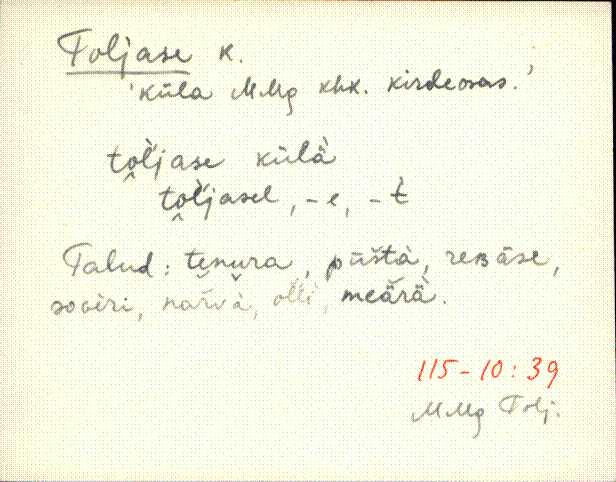 Toljase k.
'Küla M.Mg khk. kirdeosas.'
to̭l̀jase külä̀
to̭l̀jasel, -e, -t̀
Talud: tenura, püštà, reʙäse,
sovèri, nařvà, olli, meärä̀.
115-10:39
M.Mg Tolj.